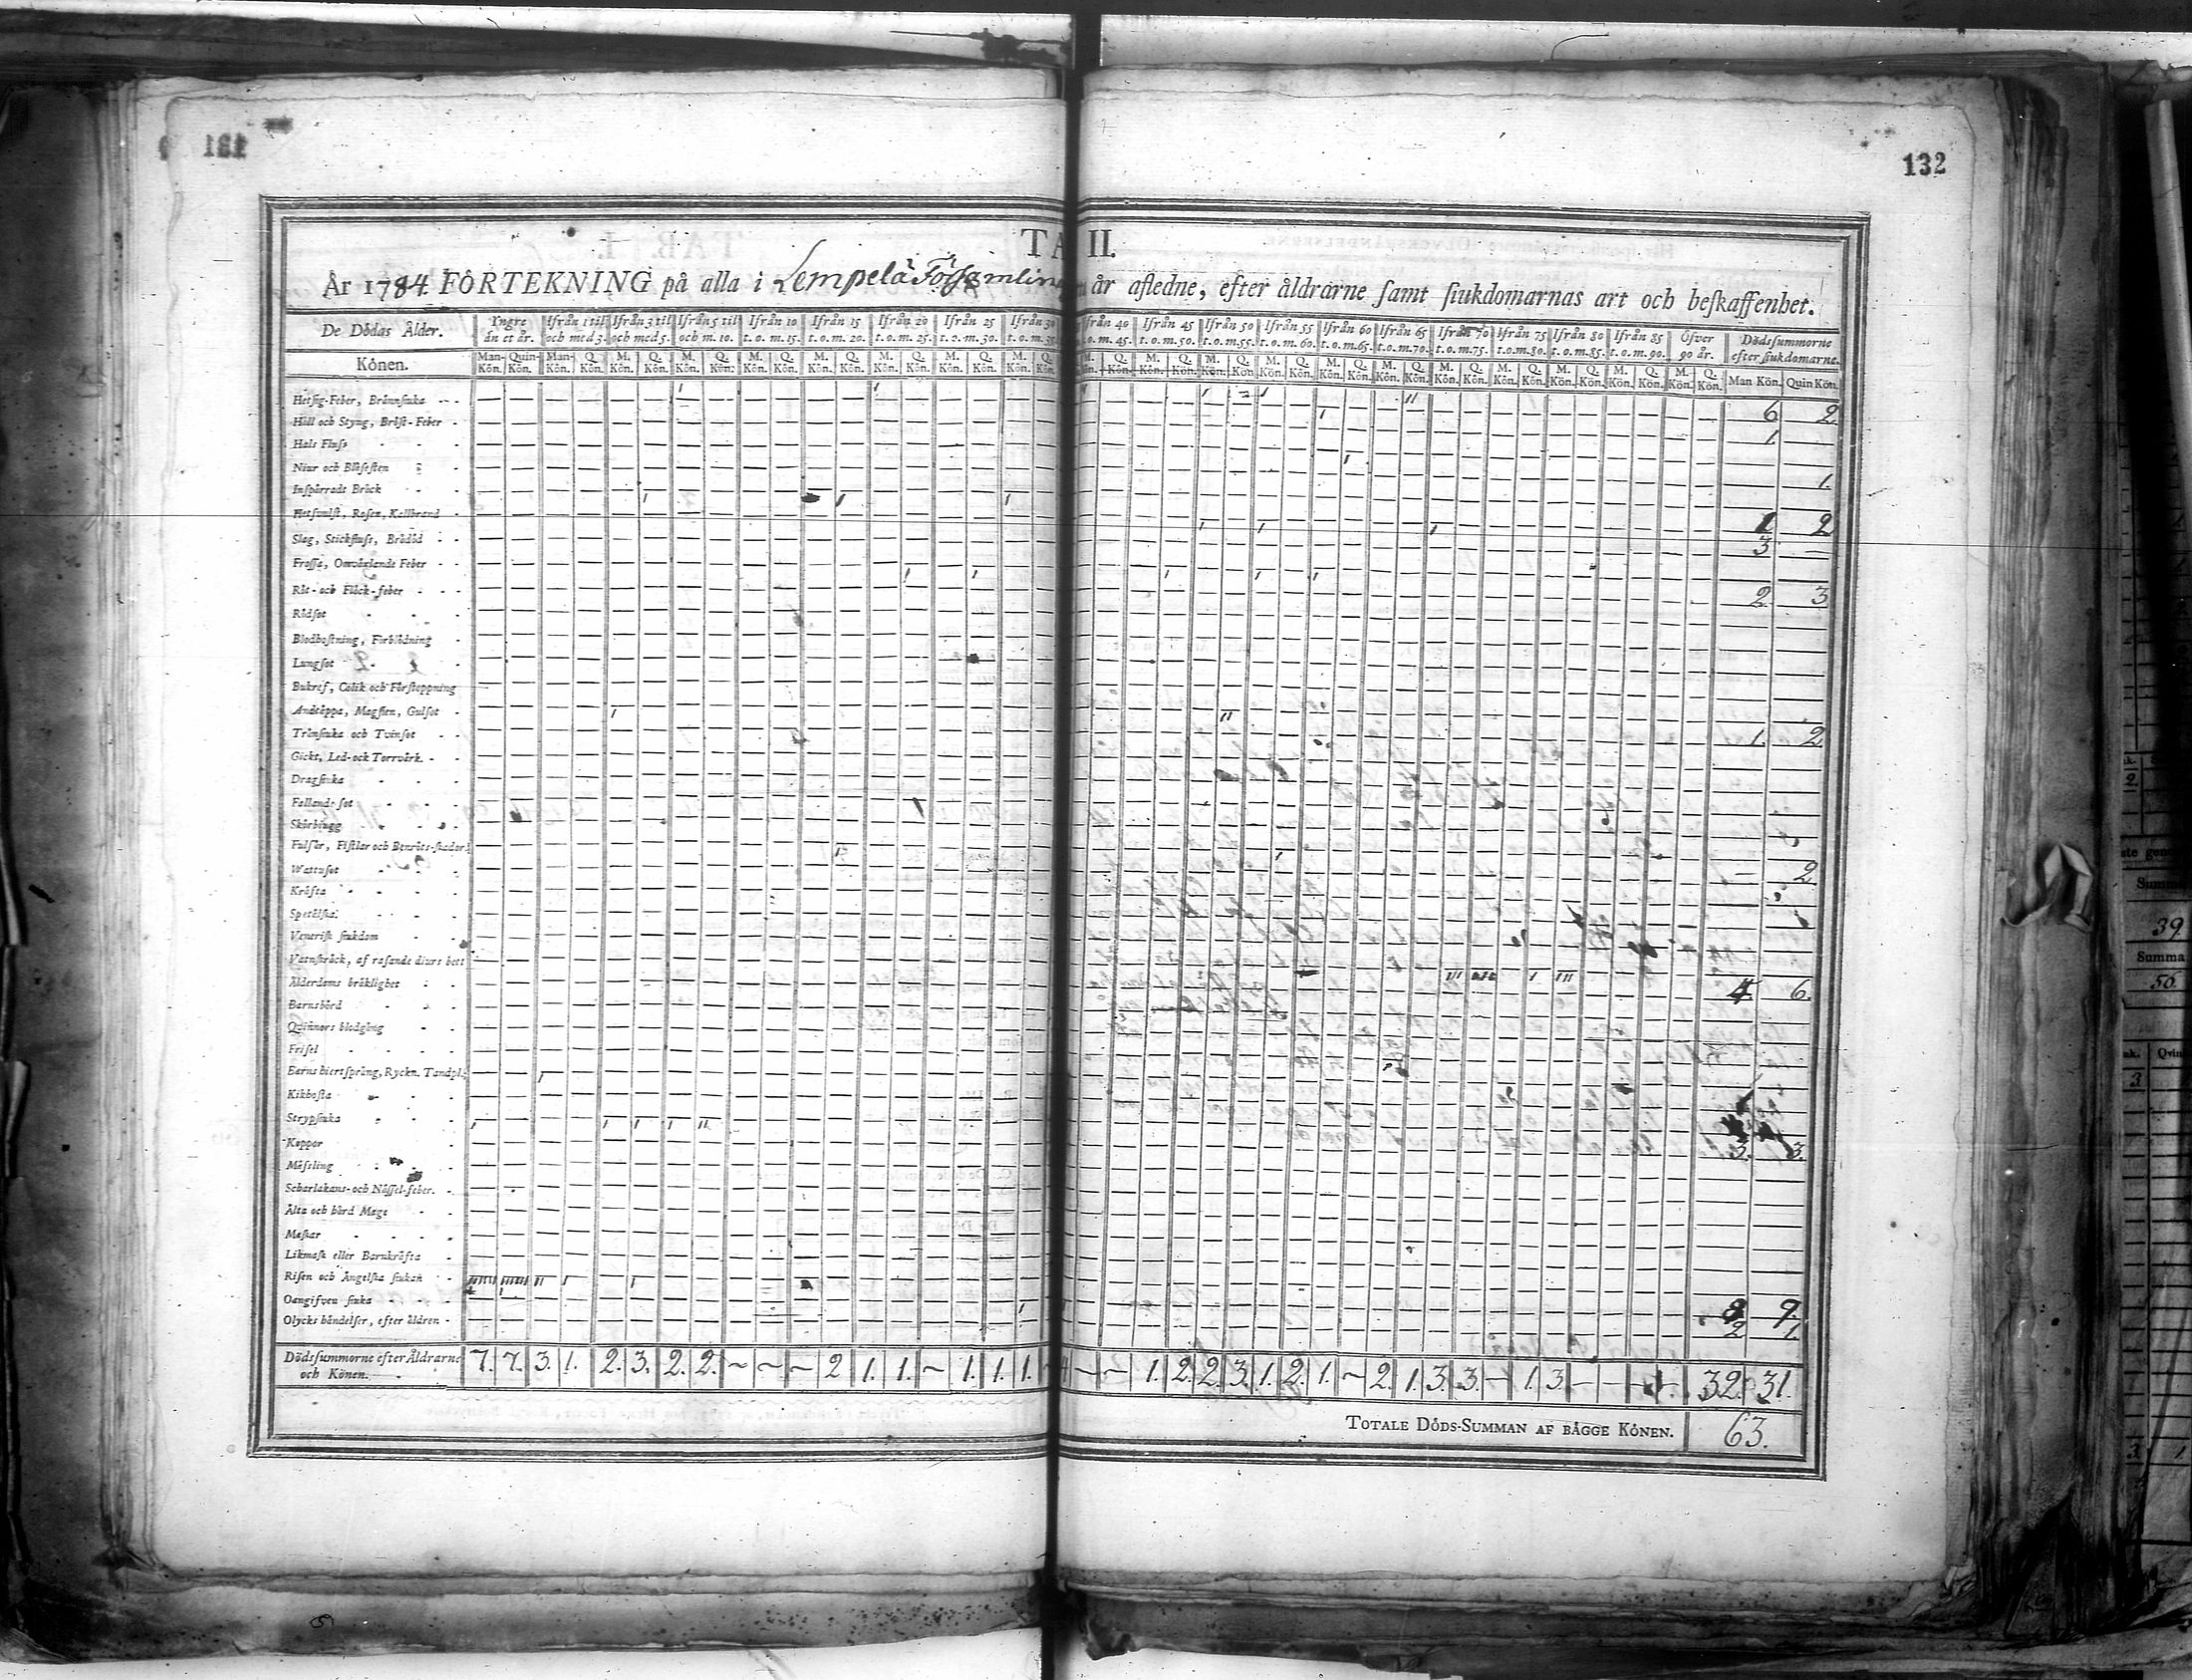 132
TA II.
År 1784. FÖRTEKNING på alla i Lempelä Församlin år afledne, efter åldrarne samt siukdomarnas art och beskaffenhet.
De Dödas Ålder. Yngre än et år. Ifrån 1 til och med 3. Ifrån 3 til och med 5. Ifrån 5 til och m. 10. Ifrån 10 t. o. m. 15. Ifrån 15 t. o. m. 20. Ifrån 20 t. o. m. 25. Ifrån 25 t. o. m. 30. Ifrån 30 t. o. m. 35. från 40 o. m. 45. Ifrån 45 t. o. m. 50. Ifrån 50 t. o. m. 55. Ifrån 55 t. o. m. 60. Ifrån 60 t. o. m. 65. Ifrån 65 t. o. m. 70. Ifrån 70 t. o. m. 75. Ifrån 75 t. o. m. 80. Ifrån 80 t. o. m. 85. Ifrån 85 t. o. m. 90. Öfver 90 år. Dödssummorne efter siukdomarne.
Könen. Man-Kön. Quin-Kön. Man-Kön. Q. Kön. M. Kön. Q. Kön. M. Kön. Q. Kön. M. Kön. Q. Kön. M. Kön. Q. Kön. M. Kön. Q. Kön. M. Kön. Q. Kön. M. Kön. Q. Kön. Man Kön. Quin Kön.
Hetsig-Feber, Brännsiuka 6 2
Håll och Styng, Bröst-Feber 1
Hals Fluss
Niur och Blåsesten 1.
Inspärradt Bråck
Hetsvulst, Rosen, Kallbrand 1 2
Slag, Stickfluss, Brådöd 3 —
Frossa, Omväxlande Feber
Röt- och Fläck-feber 2. 3
Rödsot
Blodhostning, Förblödning
Lungsot
Bukref, Colik och Förstoppning
Andtäppa, Magsten, Gulsot 1. 2
Tränsiuka och Tvinsot
Gickt, Led- och Torrvärk.
Dragsiuka
Fallande sot
Skörbiugg
Fulsår, Fistlar och Benröts-skador
Wattusot — 2
Kräfta
Spetälska
Venerisk siukdom
Vatnskräck, af rasande diurs bett
Ålderdoms bräklighet 4. 6.
Barnsbörd
Quinnors blodgång
Frisel
Barns hiertsprång, Ryckn. Tandpl.
Kikhosta
Strypsiuka 3. 3.
Koppor
Mässling
Scharlakans- och Nässel-feber.
Älta och hård Mage
Maskar
Likmask eller Barnkräfta
Risen och Ängelska siukan
Oangifven siuka 8 9.
Olycks händelser, efter åldren 2 1.
Dödssummorne efter Åldrarne och Könen. 7. 7. 3. 1. 2. 3. 2. 2. ~ ~ ~ 2 1. 1. ~ 1. 1. 1. 4 — — 1. 2. 2. 3. 1. 2. 1. ~ 2. 1. 3. 3. — 1. 3. — — — — 32. 31.
TOTALE DÖDS-SUMMAN AF BÄGGE KÖNEN. 63.
39
Summa
56